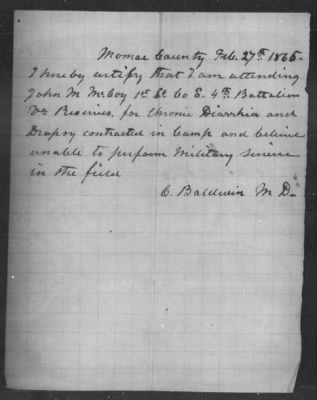 Monroe County Feb. 27th 1865-
I hereby certify that I am attending
John M McCoy 1st Lt. Co E. 4th Battalion
Va Reserves, for Chronic Diarrhiea and
Dropsy contracted in Camp and believe
unable to perform Military service
in the field
C. Baldwin M D-